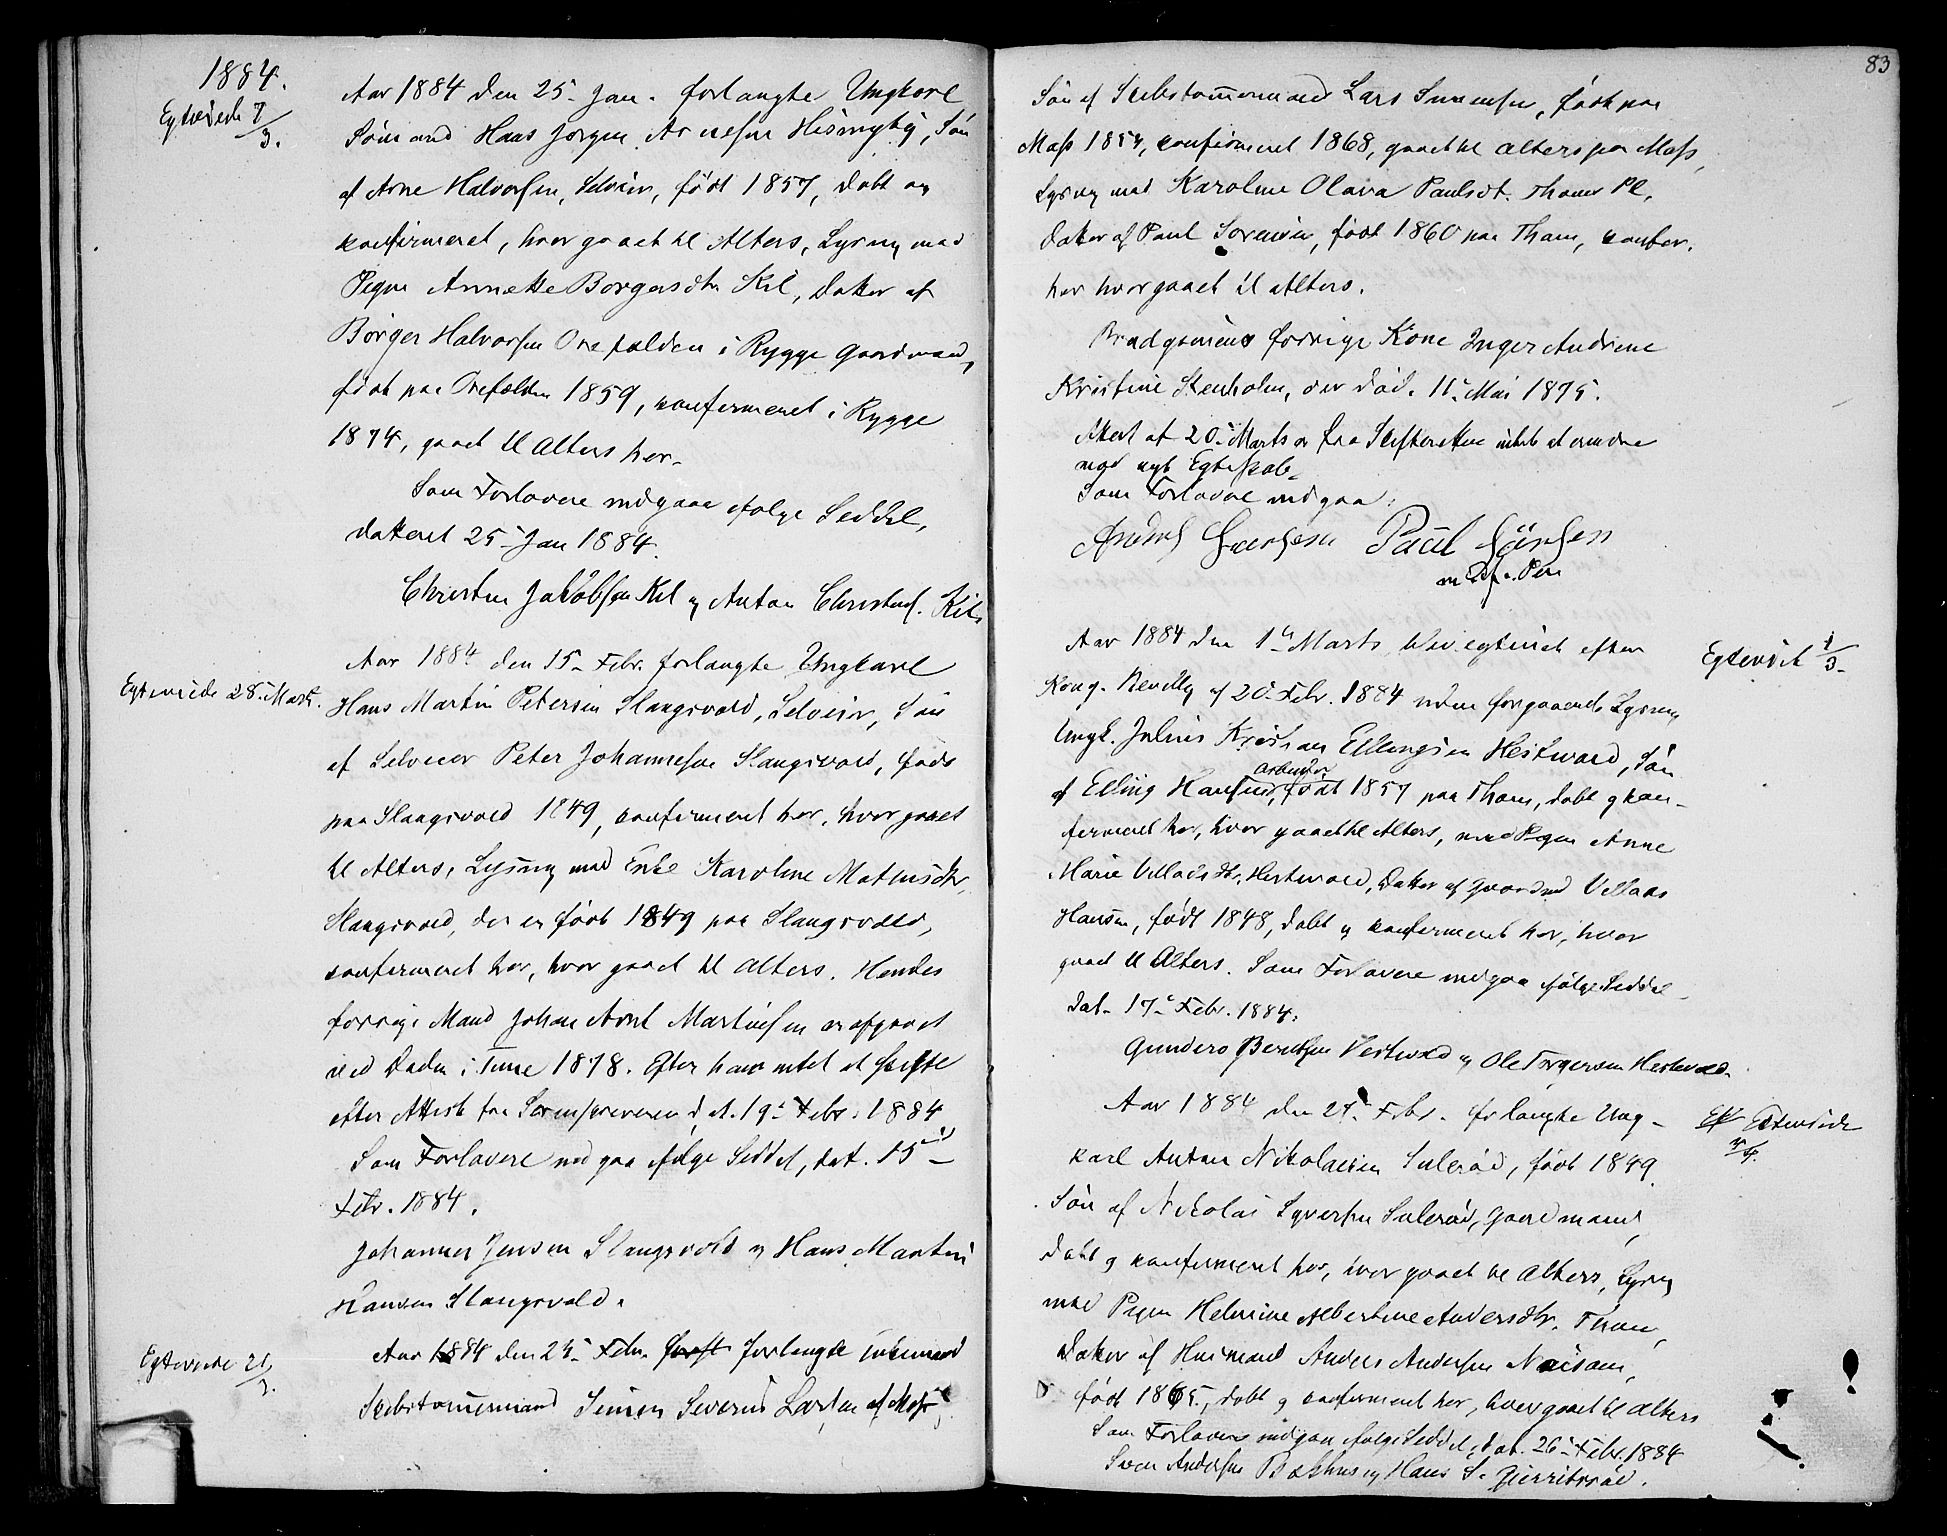 1884.
Egteviede 7/3.
Aar 1884 den 25- Jan. forlangte Ungkarl
Sømand Hans Jørgen Arnesen, Søn
af Arne Halvorsen, Selveier, født 1857, døbt og
konfirmeret, hvor gaaet til Alters, Lysning med
Pigen Annette Borgersdtr Kil, Datter af
Börger Halvorsen Orefalden i Rygge Gaardmand,
født paa Orefalden 1859, konfirmeret i Rygge
1874, gaaet til Alters her.
Som Forlovere indgaar ifølge Seddel,
dateret 25- Jan 1884.
Christen Jakobsen Kil og Anton Christens. Kil.
Egteviede 28. Marts.
Aar 1884 den 15- Febr. forlangte Ungkarl
Hans Martin Petersen Slangsvold, Selveier, Søn
af Selveier Peter Johannesen Slangsvold, født
paa Slangsvold 1849, konfirmeret her, hvor gaaet
til Alters, Lysning med Enke Karoline Mathisdtr.
Slangsvold, der er født 1849 paa Slangsvold,
konfirmeret her, hvor gaaet til Alters. Hendes
forrige Mand Johan Arnt Martinsen er afgaaet
ved Døden i Tune 1878. Efter ham intet at skifte
efter Attest fra Sorenskriveren dat. 19- Febr. 1884
Som Forlovere indgaa ifølge Seddel, dat. 15-
Febr. 1884.
Johannes Jensen Slangsvold og Hans Martin
Hansen Slangsvold.
Egteviede 21/3.
Aar 1884 den 23- Febr. forlangte Enkemand
Skibstømmermand Simen Severin Larsen af Moss,
83
Søn af Skibstømmermand Lars Simensen, født paa
Moss 1854, konfirmeret 1868, gaaet til Alters paa Moss,
Lysning med Karoline Olava Paulsdt. Thom Pl.
Datter af Paul Sørensen, født 1860 paa Thom, konfir.
her hvor gaaet til Alters.
Brudgomens forrige Kone Inger Andrine
Kristine Stenholm, der død. 11- Mai 1875.
Attest af 20- Marts er fra Skifteretten intet at erindre
mod nyt Egteskab.
Som Forlovere indgaa:
Paul Sörensen
m. P. f. Pen
Egteviet 1/3-
Aar 1884 den 1ste Marts blev egteviet efter
Kong. Bevilling af 20- Febr. 1884 uden forgaaende Lysning
Ungk. Julius Kristian Ellingsen Hestevold, Søn
af Elling Hansen, Arbeider, født 1857 paa Thom, døbt og kon-
firmeret her, hvor gaaet til Alters, med Pigen Anne
Marie Villadsdtr. Hestevold, Datter af Gaardmd Villads
Hansen, født 1848, døbt og konfirmeret her, hvor
gaaet til Alters. Som Forlovere indgaa ifølge Seddel-
dat. 17- Febr. 1884.
Gunders Berntsen Hestevold og Ole Torgersen Hestevold.
Egteviede 3/4.
Aar 1884 den 27- Febr. forlangte Ung-
karl Anton Nikolaisen Sulerød, født 1849
Søn af Nikolai Syversen Sulerød, Gaardmand,
døbt og konfirmeret her, hvor gaaet til Alters, Lysning
med Pigen Helmine Albertine Andersdtr. Thom,
Datter af Husmand Anders Andersen
født 1865, døbt og konfirmeret her, hvor gaaet til Alters
Som Forlovere indgaa ifølge Seddel, dat. 26- Febr. 1884
Andersen Bakhus og Hans S.